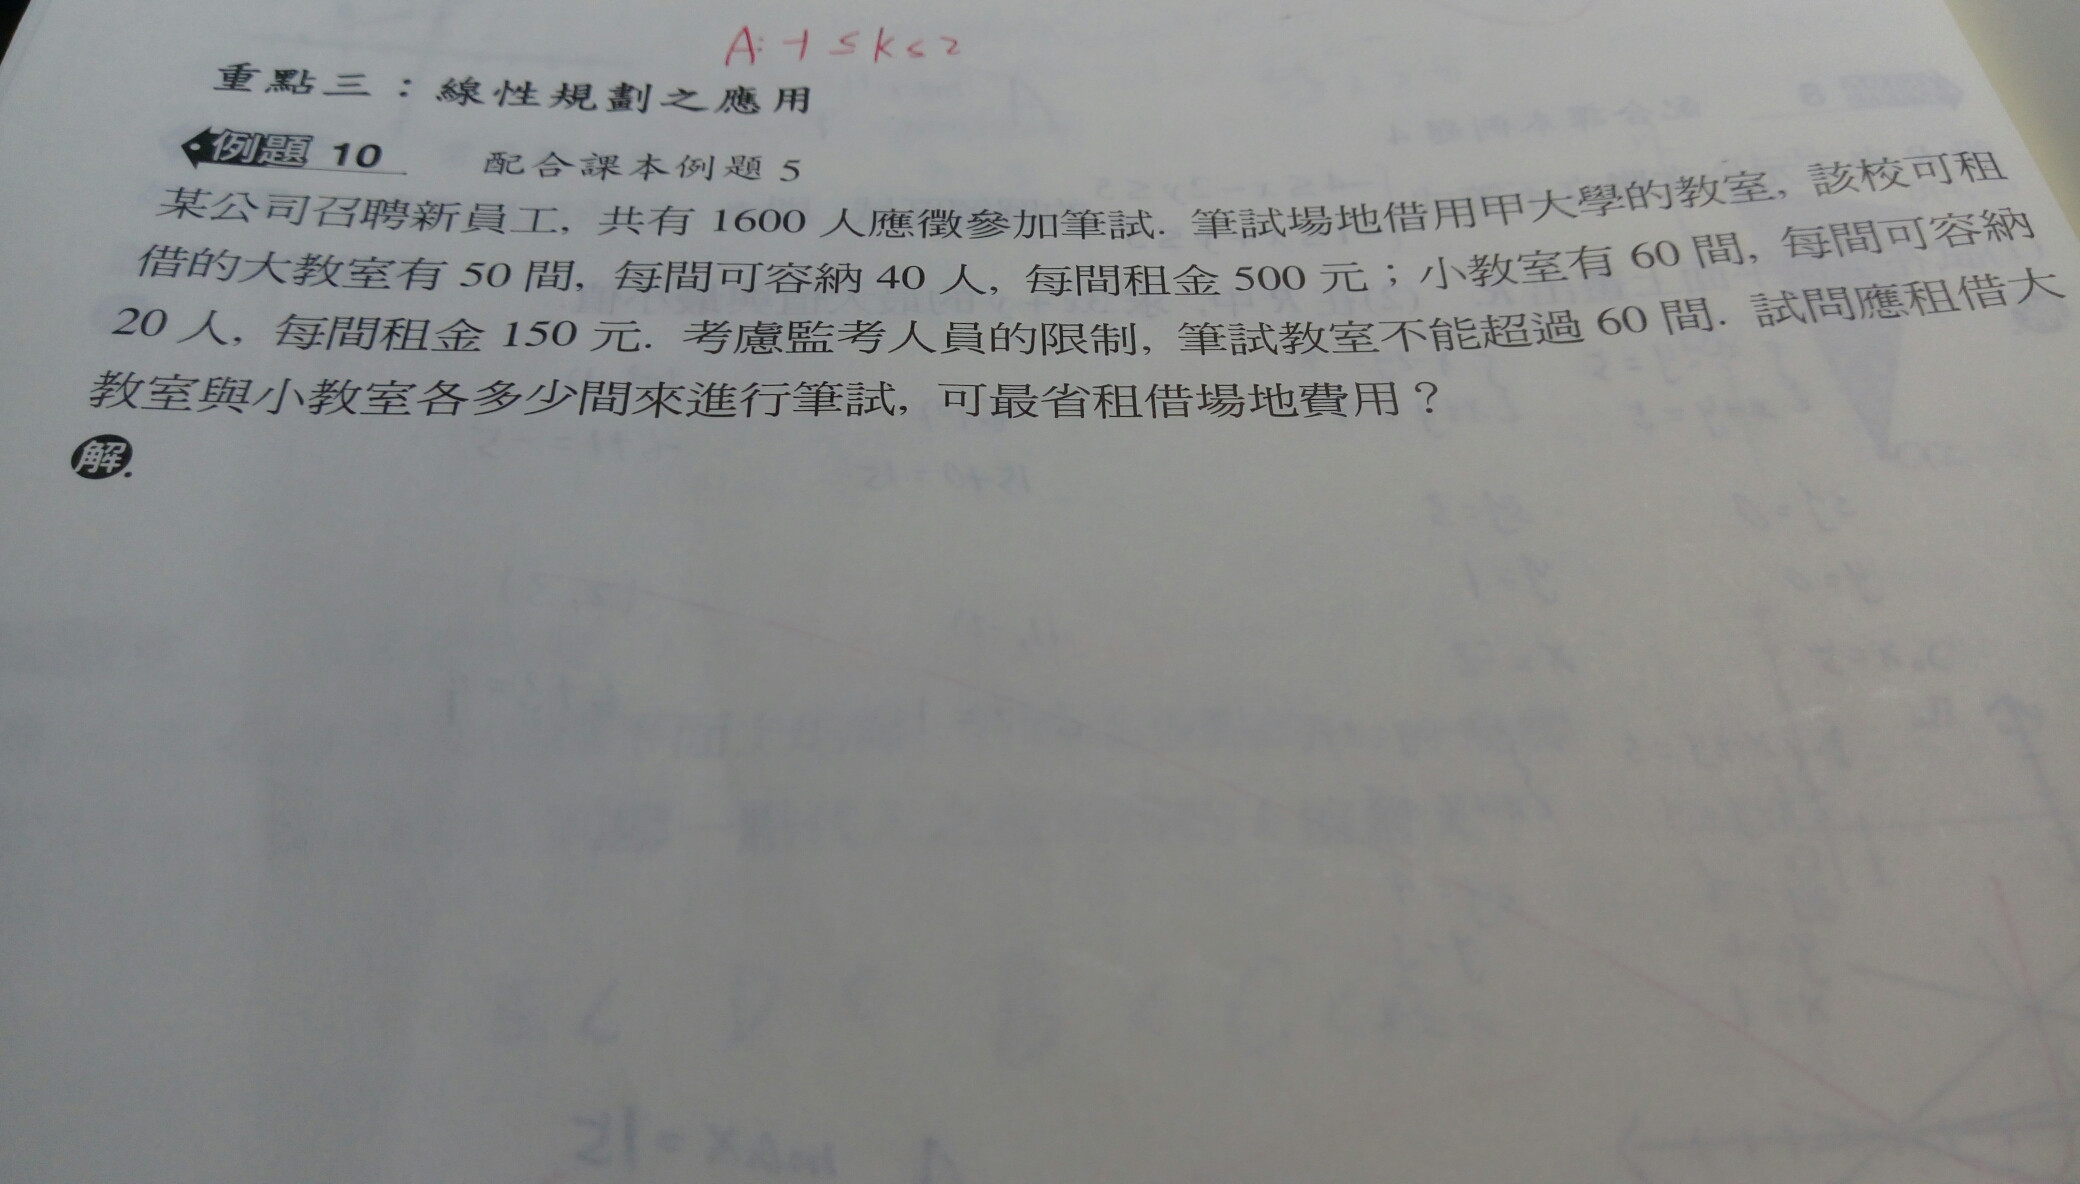 A: -1 ≤ k ≤ 2
重點三：線性規劃之應用
例題 10 配合課本例題 5
某公司召聘新員工, 共有 1600 人應徵參加筆試. 筆試場地借用甲大學的教室, 該校可租
借的大教室有 50 間, 每間可容納 40 人, 每間租金 500 元；小教室有 60 間, 每間可容納
20 人, 每間租金 150 元. 考慮監考人員的限制, 筆試教室不能超過 60 間. 試問應租借大
教室與小教室各多少間來進行筆試, 可最省租借場地費用？
解.